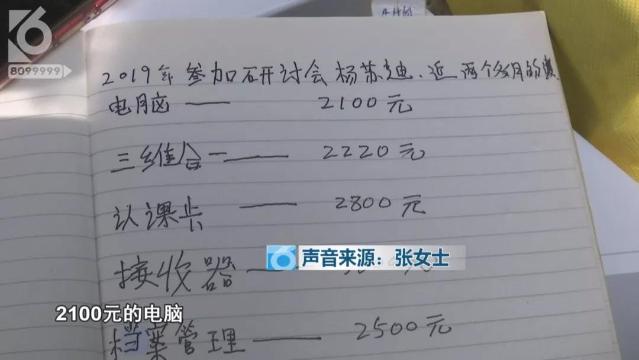 6
8099999
2019年参加研讨会杨苏迪、近两个多月的
电脑—— 2100元
三维合一—— 2220元
认课卡 —— 2800元
接收器——
声音来源：张女士
2100元的电脑
档案管理—— 2500元